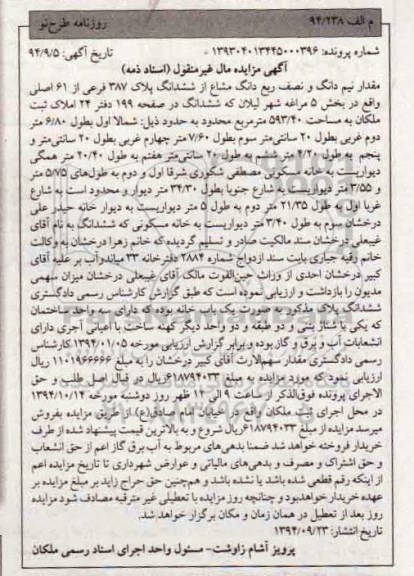 م الف ۹۴/۲۳۸ روزنامه طرح‌نو
شماره پرونده: ۱۳۹۳۰۴۰۱۳۴۴۵۰۰۰۳۹۶ تاریخ آگهی: ۹۴/۹/۵
آگهی مزایده مال غیرمنقول (اسناد ذمه)
مقدار نیم دانگ و نصف ربع دانگ مشاع از ششدانگ پلاک ۳۸۷ فرعی از ۶۱ اصلی
واقع در بخش ۵ مراغه شهر لیلان که ششدانگ در صفحه ۱۹۹ دفتر ۲۴ املاک ثبت
ملکان به مساحت ۵۹۳/۴۰ مترمربع محدود به حدود ذیل: شمالا اول بطول ۶/۸۰ متر
دوم غربی بطول ۲۰ سانتی‌متر سوم بطول ۷/۶۰ متر چهارم غربی بطول ۲۰ سانتی‌متر و
پنجم به طول ۴/۲۰ متر ششم به طول ۲۰ سانتی‌متر هفتم به طول ۲۰/۴۰ متر همگی
دیواریست به خانه مسکونی مصطفی شکوری شرقا اول و دوم به طول‌های ۵/۷۵ متر
و ۳/۵۵ متر دیواریست به شارع جنوبا بطول ۳۴/۳۰ متر دیوار و محدود است به شارع
غربا اول به طول ۲۱/۳۵ متر دوم به طول ۵ متر دیواریست به دیوار خانه حیدر علی
درخشان سوم به طول ۳/۴۰ متر دیواریست به خانه مسکونی که ششدانگ به نام آقای
غیبعلی درخشان سند مالکیت صادر و تسلیم گردیده که خانم زهرا درخشان به وکالت
خانم رقیه جباری بابت سند ازدواج شماره ۲۸۸۴ دفترخانه ۳۳ میاندوآب بر علیه آقای
کبیر درخشان احدی از وراث حین‌الفوت مالک آقای غیبعلی درخشان میزان سهمی
مدیون را بازداشت و ارزیابی نموده است که طبق گزارش کارشناس رسمی دادگستری
ششدانگ پلاک مذکور به صورت یک باب خانه بوده که دارای سه واحد ساختمان
که یکی با شناژ بتنی و دو طبقه و دو واحد دیگر کهنه ساخت با اعیانی آجری دارای
انشعابات آب و برق و گاز بوده و برابر گزارش ارزیابی مورخه ۱۳۹۴/۰۱/۰۵ کارشناس
رسمی دادگستری مقدار سهم‌الارث آقای کبیر درخشان را به مبلغ ۱۱۰۱۹۶۶۶۶۶ ریال
ارزیابی نمود که مورد مزایده و مبلغ ۶۱۸۷۹۴۰۳۳ ریال در قبال اصل طلب و حق
الاجرای پرونده فوق‌الذکر از ساعت ۹ الی ۱۲ ظهر روز دوشنبه مورخه ۱۳۹۴/۱۰/۱۴
در محل اجرای ثبت ملکان واقع در خیابان امام صادق(ع) از طریق مزایده بفروش
میرسد مزایده از مبلغ ۶۱۸۷۹۴۰۳۳ ریال شروع و به بالاترین قیمت پیشنهاد شده از طرف
خریدار فروخته خواهد شد ضمنا بدهی‌های مربوط به آب برق گاز اعم از حق انشعاب
و حق اشتراک و مصرف و بدهی‌های مالیاتی و عوارض شهرداری تا تاریخ مزایده اعم
از اینکه رقم قطعی شده باشد یا نشده باشد و هم‌چنین حق حراج زاید بر مبلغ مزایده بر
عهده خریدار خواهدبود و چنانچه روز مزایده با تعطیلی غیر مترقبه مصادف شود مزایده
روز بعد از تعطیل در همان زمان و مکان برگزار خواهد شد.
تاریخ انتشار: ۱۳۹۴/۰۹/۲۳
پرویز آشام زاوشت- مسئول واحد اجرای اسناد رسمی ملکان